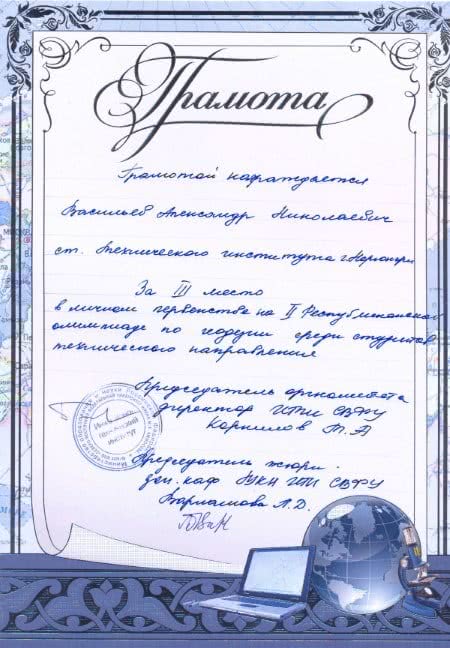 Грамота
Грамотой награждается
Васильев Александр Николаевич
ст. Технического института г. Нерюнгри
За III место
в личном первенстве на II Республиканской
олимпиаде по геодезии среди студентов
технического направления
Председатель оргкомитета
директор ИТИ СВФУ
Корнилов Т. А
Председатель жюри.
зам. каф ИТИ СВФУ
Варламова Л. Д.
Инженерно-
технический
институт